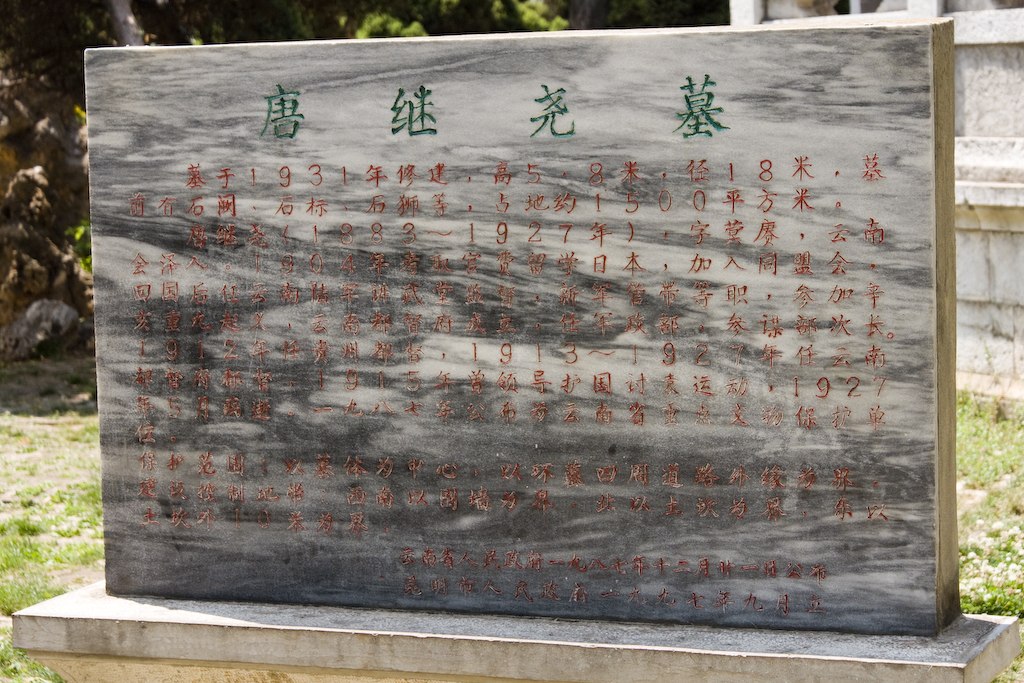 唐继尧墓
墓于1931年修建，高5.8米，径18米，墓
前有石阙、石标、石狮等，占地约1500平方米。
唐继尧（1883～1927年），字蓂赓，云南
会泽人。1904年考取官费留学日本，加入同盟会，
回国后任云南陆军讲武堂监督，新军管带等职，参加辛
亥重九起义，云南都督府成立，任军政部、参谋部次长。
1912年任贵州都督，1913～1927年任云南
都督商都督，1915年曾领导护国讨袁运动，1927
年5月病逝。一九八七年公布为云南省重点文物保护单
位。
保护范围：以墓体为中心，以环墓四周道路外缘为界。
建设控制地带：西南以围墙为界，北以土坎为界，东以
土坎外10米为界。
云南省人民政府一九八七年十二月廿一日公布
昆明市人民政府一九九七年九月立